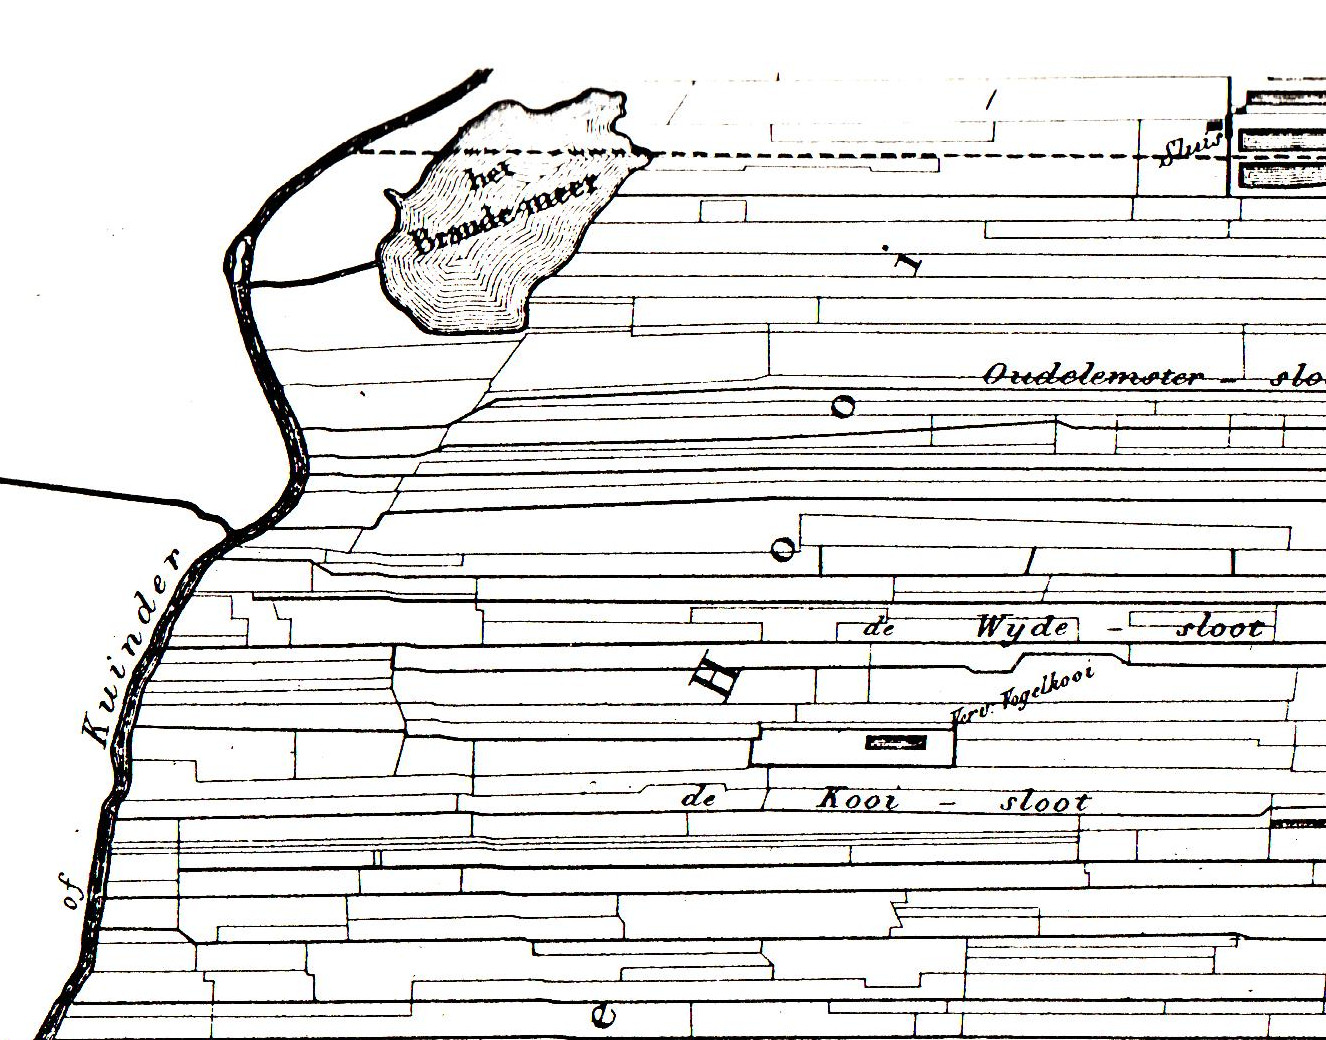 het
Brande-meer
Sluis
i
Oudelemster - slo
o
o
de Wyde - sloot
H
Verv. Vogelkooi
Kuinder
de Kooi - sloot
of
e